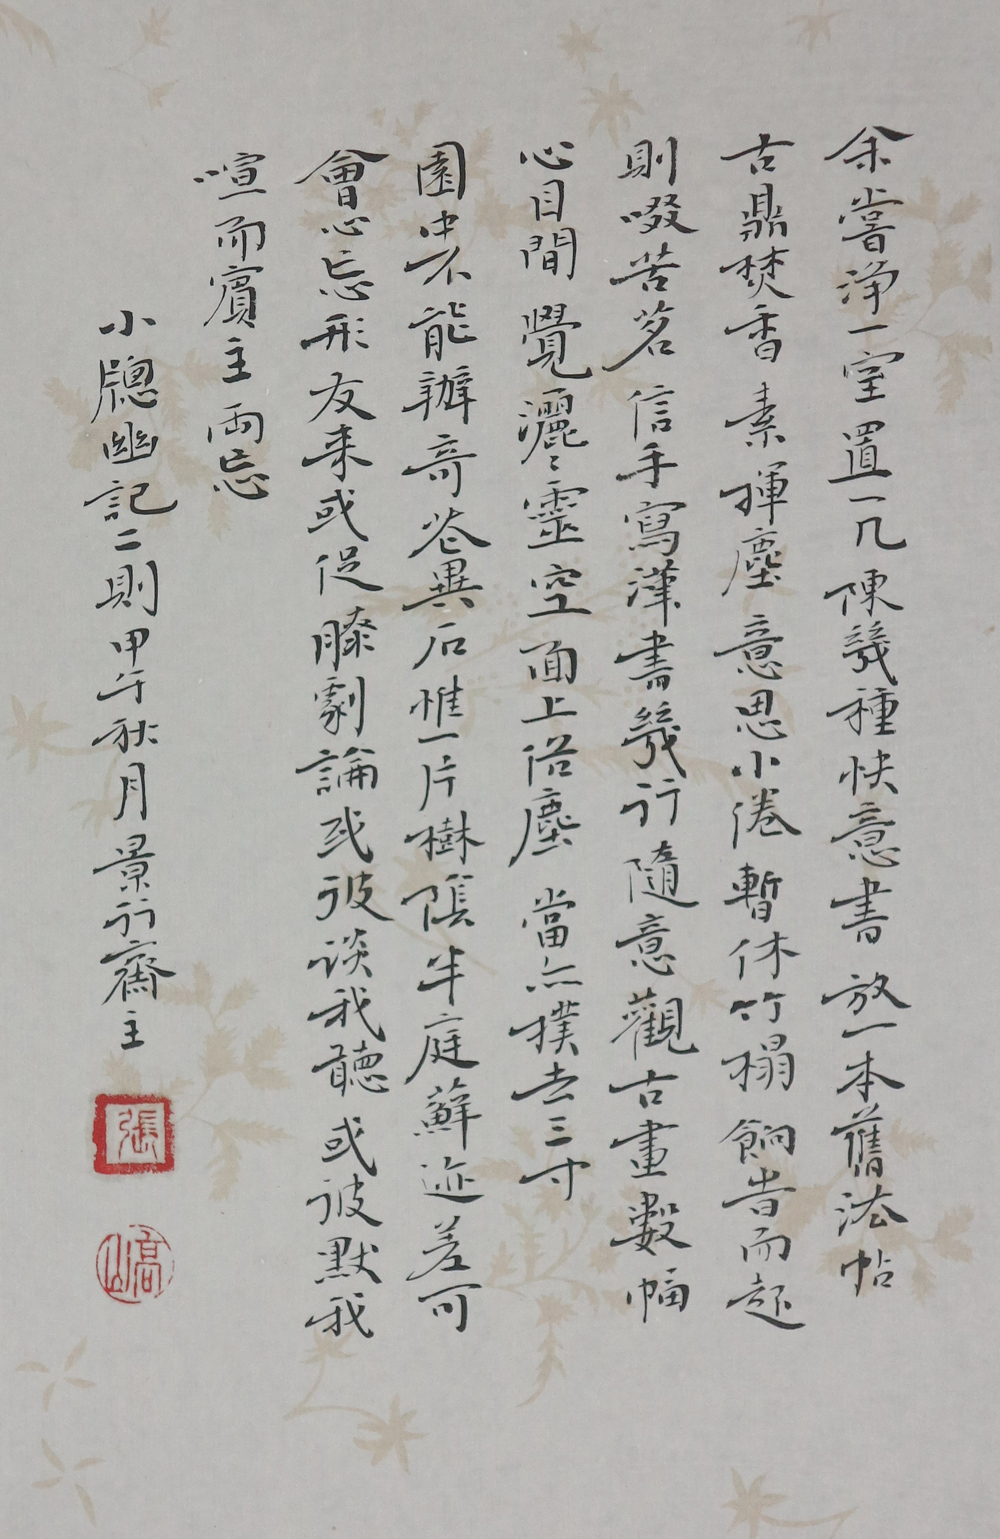 余嘗净一室置一几陳幾種快意書放一本舊法帖
古鼎焚香素揮塵意思小倦暫休竹榻餉時而起
則啜苦茗信手寫漢書幾行隨意觀古畫數幅
心目間覺灑灑靈空面上俗塵當亦撲去三寸
園中不能辦奇花異石惟一片樹陰半庭蘚迹差可
會心忘形友来或促膝劇論或彼谈我聽或彼默我
喧而賓主兩忘
小牕幽記二則甲午秋月景行齋主
張